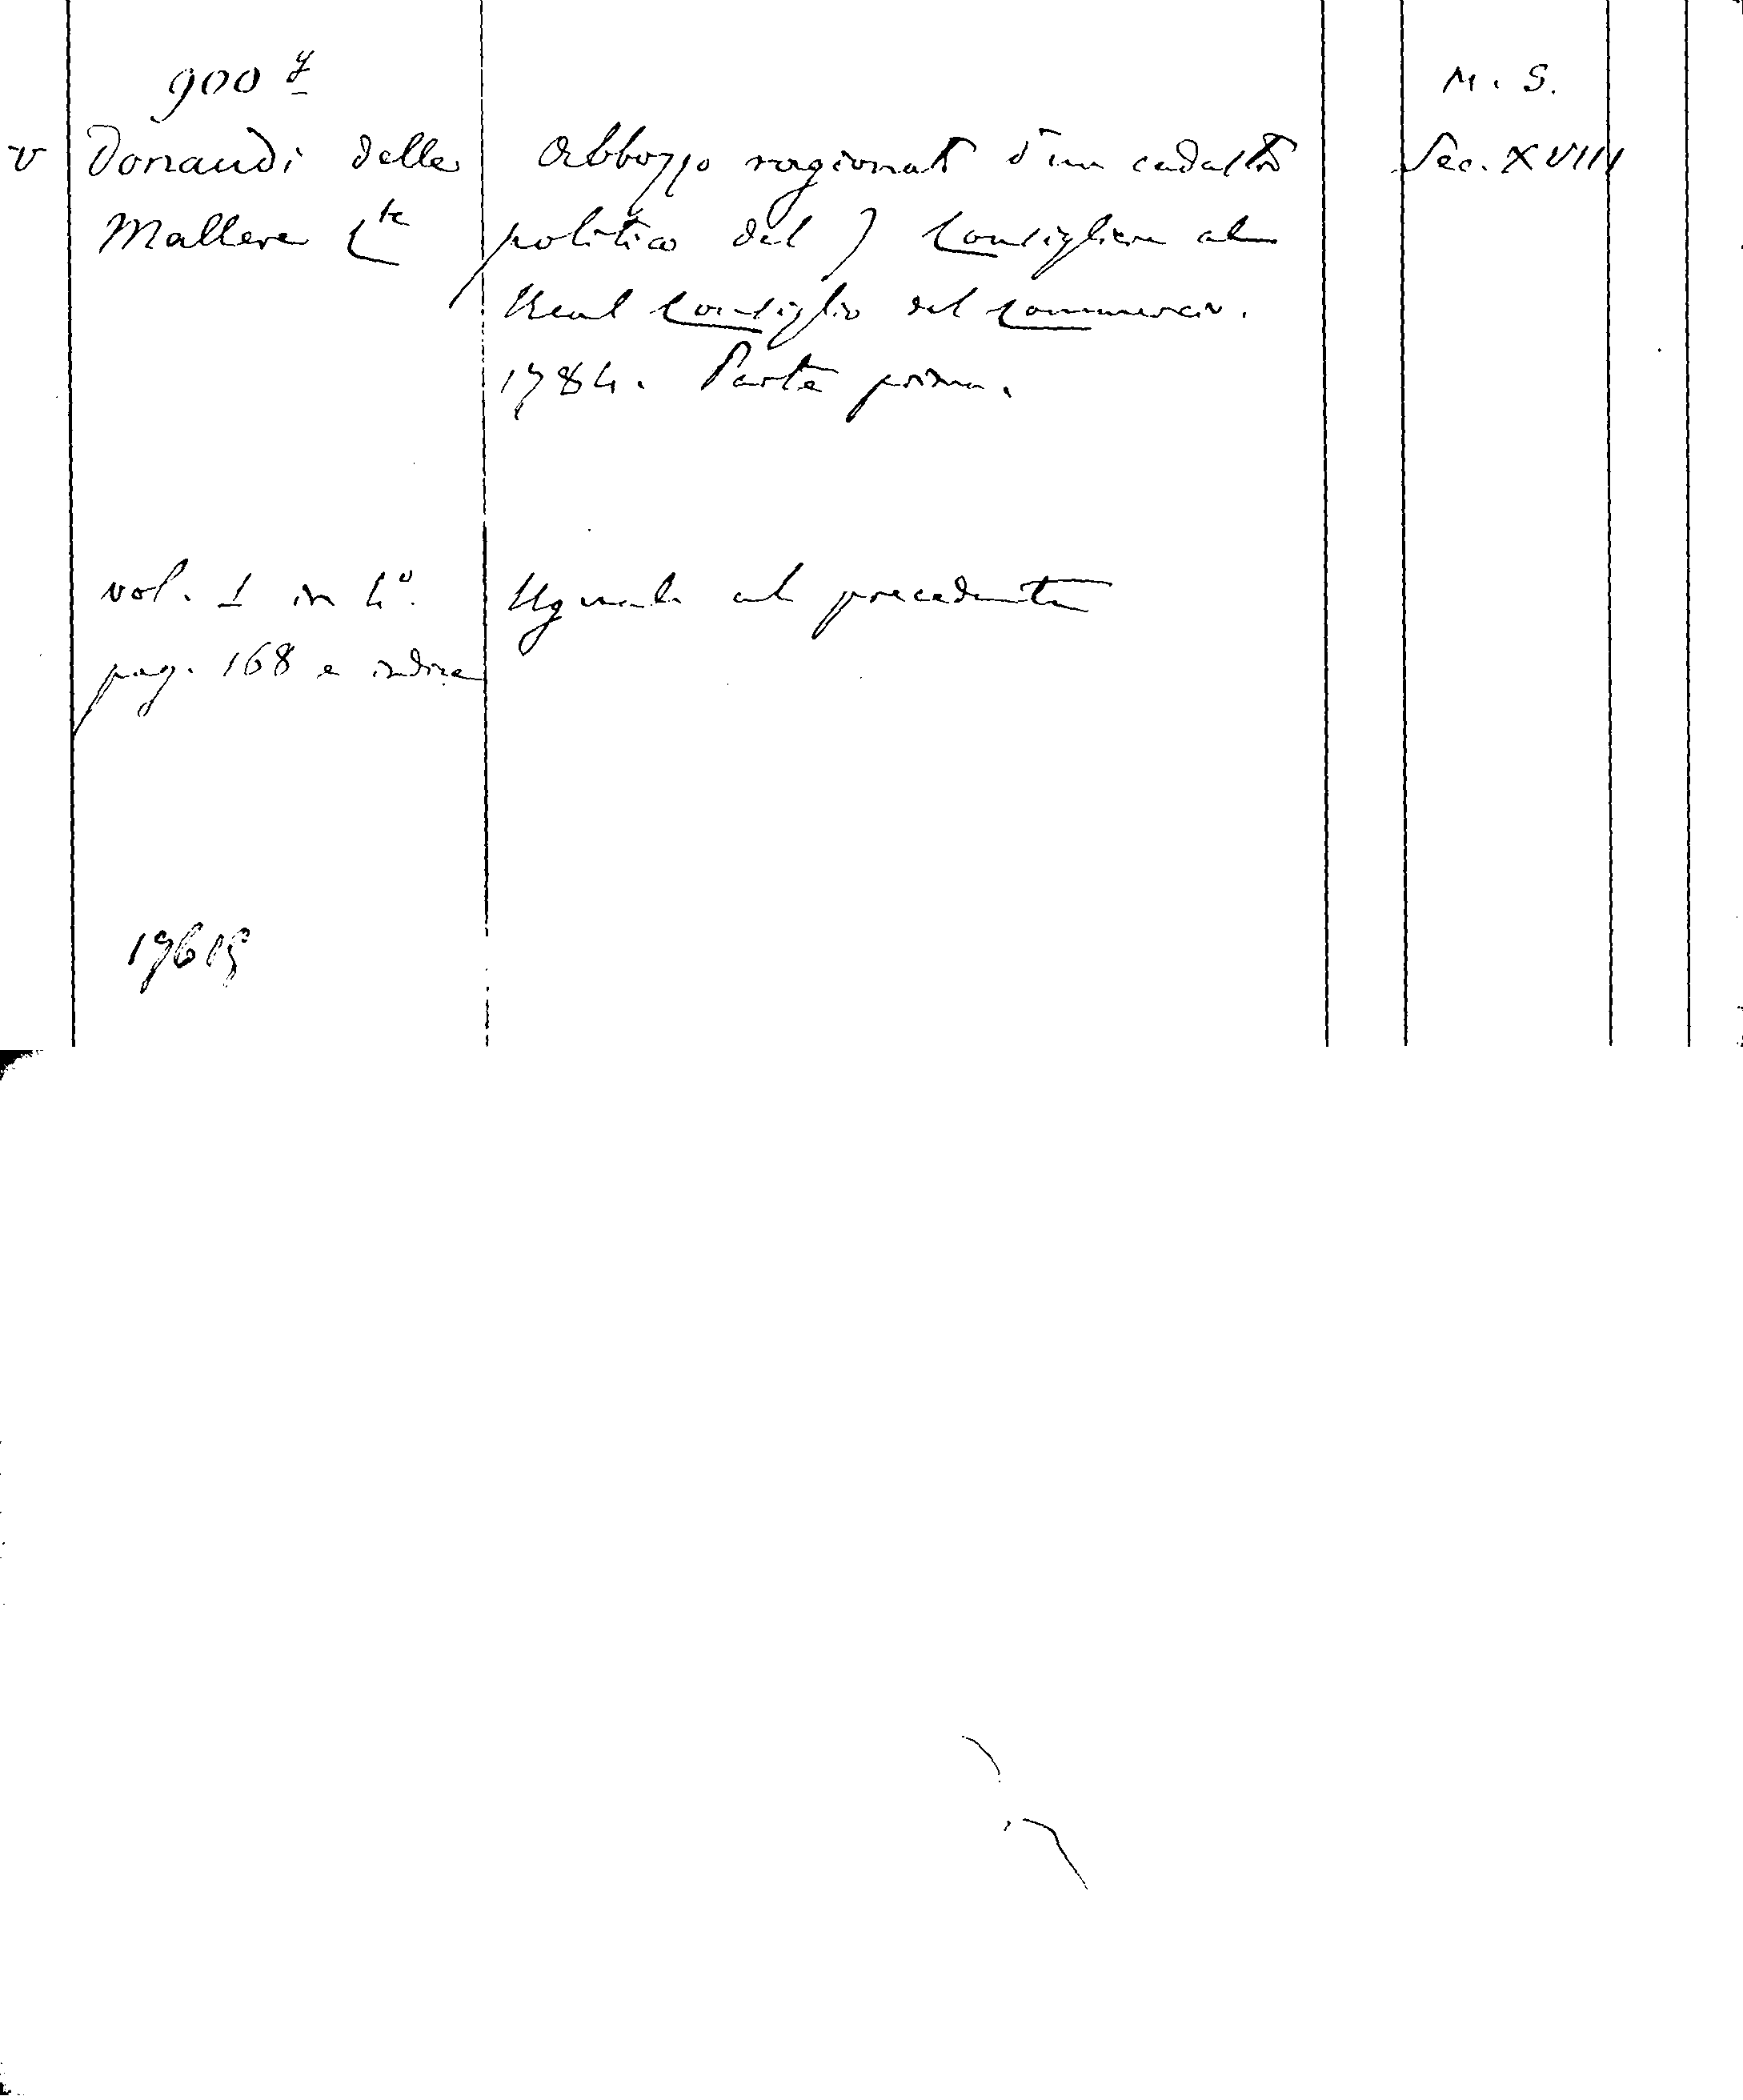 900 y
M. S.
v Donaudi delle
Abbozzo ragionato d'un cadastro
Sec. XVIII
Mallere Cte
politico del ) Consigliere al
Real Consiglio del Commercio.
1784. Parte prima.
vol. 1 in 4º.
Uguale al precedente
pag. 168 e indice
19615